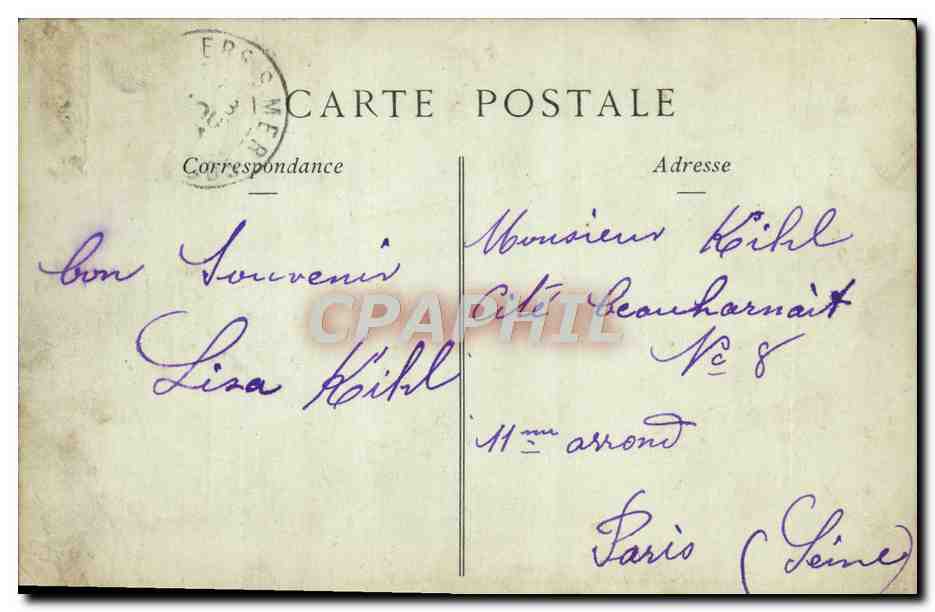 CARTE POSTALE
Correspondance
Adresse
bon Souvenir
Lisa Kihl
Monsieur Kihl
Cité beauharnait
No 8
11me arrond
Paris (Seine)
ERS S MER
CPAPHIL